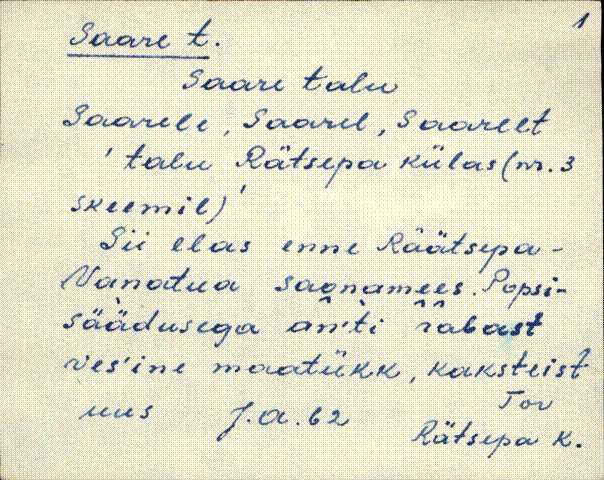 1
Saare t.
Saare talu
Saarele, Saarel, Saarelt
'talu Rätsepa külas (nr. 3
skeemil)'
Sii elas enne Räätsepa-
Vanatua sagnamees. Popsi-
säädusega an'ti rabast
ves'ine maatükk, kaksteist
uus J.A. 62 Tor
Rätsepa k.